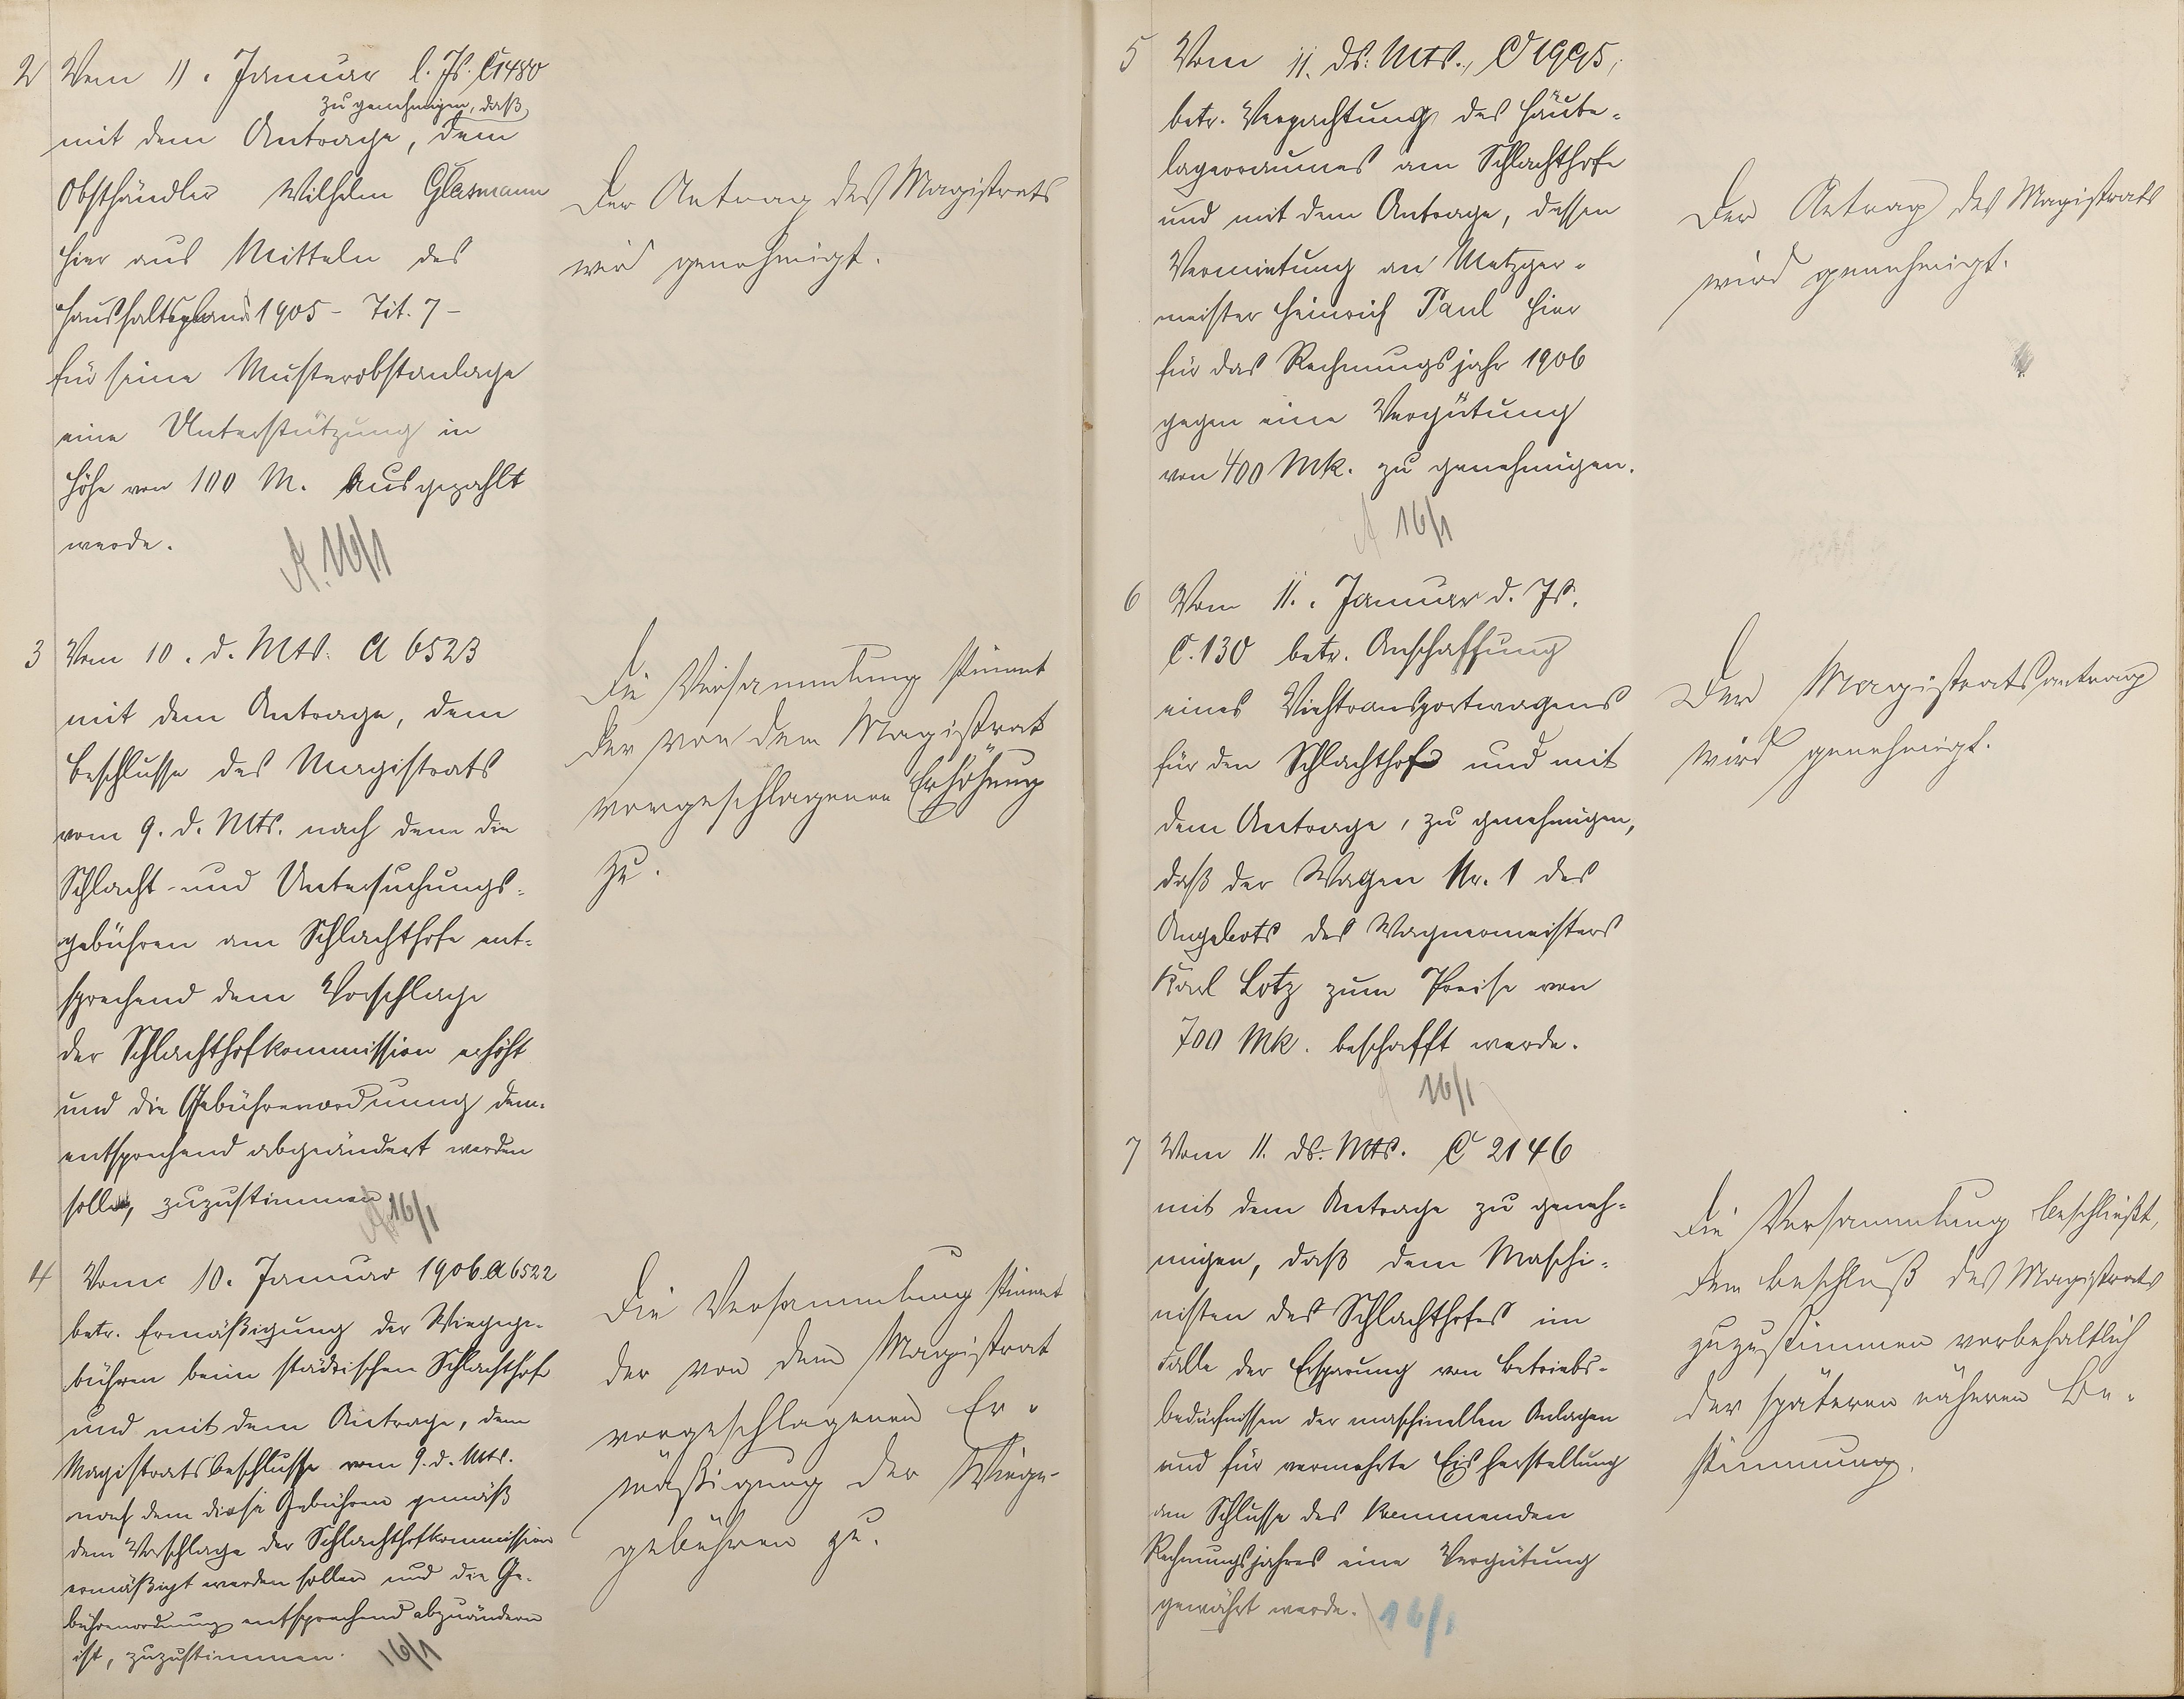 2 Vom 11. Januar l. Js. C 1480
zu genehmigen, daß
mit dem Antrage, dem
Obsthändler Wilhelm Glasmann
hier aus Mitteln des
Haushaltsplans 1905 - Tit. 7 -
für seine Musterobstanlage
eine Unterstützung in
Höhe von 100 M. ausgezahlt
werde.
A. 16/1
Der Antrag des Magistrats
wird genehmigt.
3 Vom 10. d. Mts. A 6523
mit dem Antrage, dem
Beschlusse des Magistrats
vom 9. d. Mts. nach dem die
Schlacht- und Untersuchungs-
gebühren am Schlachthofe ent-
sprechend dem Vorschlage
der Schlachthofkommission erhöht
und die Gebührenordnung dem-
entsprechend abgeändert werden
soll, zuzustimmen
16/1
Die Versammlung stimmt
der von dem Magistrat
vorgeschlagenen Erhöhung
zu.
4 Vom 10. Januar 1906 A 6522
betr. Ermäßigung der Wiegege-
bühren beim städtischen Schlachthofe
und mit dem Antrage, dem
Magistratsbeschlusse vom 9. d. Mts.
nach dem diese Gebühren gemäß
dem Vorschlage der Schlachthofkommission
ermäßigt werden sollen und die Ge-
bührenordnung entsprechend abzuändern
ist, zuzustimmen.
16/1
Die Versammlung stimmt
der von dem Magistrat
vorgeschlagenen Er-
mäßigung der Wiege-
gebühren zu.
5 Vom 11. ds. Mts., C 1995,
betr. Verpachtung des Häute-
lagerraumes am Schlachthofe
und mit dem Antrage, dessen
Vermietung an Metzger-
meister Heinrich Paul hier
für das Rechnungsjahr 1906
gegen eine Vergütung
von 400 Mk. zu genehmigen.
A 16/1
Der Antrag des Magistrats
wird genehmigt.
6 Vom 11. Januar d. Js.
C. 130 betr. Anschaffung
eines Viehtransportwagens
für den Schlachthof und mit
dem Antrage, zu genehmigen,
daß der Wagen Nr. 1 des
Angebots des Wagnermeisters
Karl Lotz zum Preise von
700 Mk. beschafft werde.
16/1
Der Magistratsantrag
wird genehmigt.
7 Vom 11. ds. Mts. C 2146
mit dem Antrage zu geneh-
migen, daß dem Maschi-
nisten des Schlachthofes im
Falle der Ersparung von Betriebs-
bedürfnissen der maschinellen Anlagen
und für vermehrte Eisherstellung
am Schlusse des kommenden
Rechnungsjahres eine Vergütung
gewährt werde.
16/1
Die Versammlung beschließt,
dem Beschluß des Magistrats
zuzustimmen vorbehaltlich
der späteren näheren Be-
stimmung.